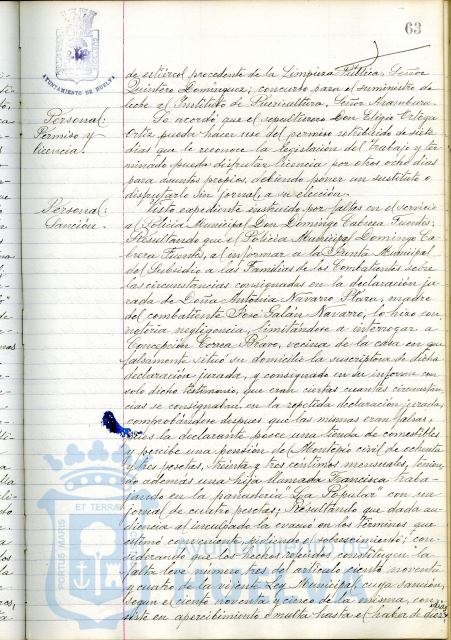 63
AYUNTAMIENTO DE HUELVA
de estiércol procedente de la Limpieza Pública, Señor
Quintero Domínguez; concurso para el suministro de
leche el Instituto de Puericultura, Señor Aramburu.
Personal:
Permiso y
licencia.
Se acordó que el sepulturero Don Eligio Ortega
Ortiz pueda hacer uso del permiso retribuido de siete
dias que le reconoce la legislación del Trabajo y ter-
minado pueda disfrutar licencia por otros ocho dias
para asuntos propios, debiendo poner un sustituto o
disfrutarlo sin jornal, a su elección.
Personal:
Sanción.
Visto expediente instruido por faltas en el servicio
al Policia Municipal Don Domingo Cabrera Fuentes;
Resultando que el Policia Municipal Domingo Ca-
brera Fuentes, al informar a la Junta Municipal
del Subsidio a las Familias de los Combatientes sobre
las circunstancias consignadas en la declaración ju-
rada de Doña Antonia Navarro Plaza, madre
del combatiente José Galán Navarro, lo hizo con
notoria negligencia, limitándose a interrogar a
Concepción Correa Bravo, vecina de la casa en que
falsamente situó su domicilio la suscriptora de dicha
declaración jurada, y consignado en su informe con
solo dicho testimonio, que eran ciertas cuantas circunstan-
cias se consignaban en la repetida declaración jurada,
comprobándose despues que las mismas eran falsas,
pues la declarante posee una tienda de comestibles
y percibe una pensión del Montepio civil de ochenta
y tres pesetas, treinta y tres centimos mensuales, tenien-
do además una hija llamada Francisca traba-
jando en la panaderia "La Popular" con un
jornal de cuatro pesetas; Resultando que dada au-
diencia al inculpado la evacuó en los términos que
estimó conveniente pidiendo el sobreseimiento; con-
siderando que los hechos referidos constituyen la
falta leve número tres del articulo ciento noventa
y cuatro de la vigente Ley Municipal cuya sanción,
según el ciento noventa y cinco de la misma, con-
siste en apercibimiento o multa hasta el haber de diez
dias
PORTUS MARIS
ET TERRAE